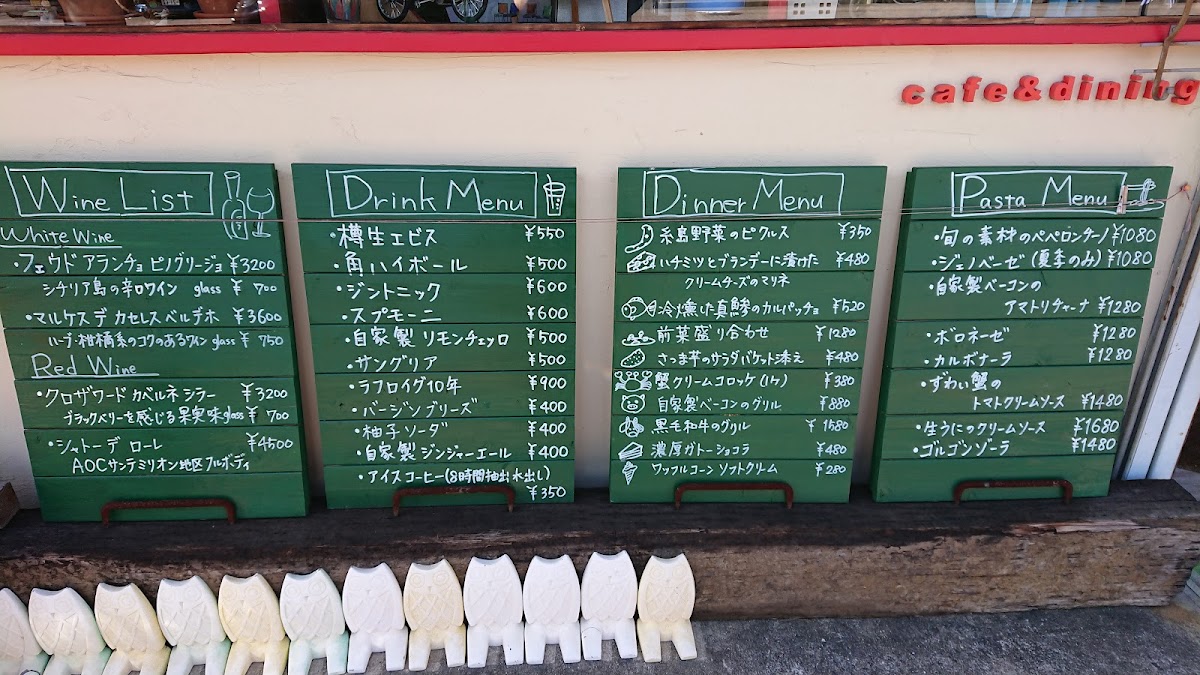 cafe&dining
Wine List
White Wine
・フェウド アランチョ ピノグリージョ ¥3200
シチリア島の辛口ワイン glass ¥700
・マルケス デ カセレス ベルデホ ¥3600
ハーブ・柑橘系のコクのあるワイン glass ¥750
Red Wine
・クロザワード カベルネ シラー ¥3200
ブラックベリーを感じる果実味 glass ¥700
・シャトー デ ローレ ¥4500
AOCサンテミリオン地区フルボディ
Drink Menu
・樽生エビス ¥550
・角ハイボール ¥500
・ジントニック ¥600
・スプモーニ ¥600
・自家製 リモンチェッロ ¥500
・サングリア ¥500
・ラフロイグ10年 ¥900
・バージンブリーズ ¥400
・柚子ソーダ ¥400
・自家製ジンジャーエール ¥400
・アイスコーヒー(8時間抽出水出し)
¥350
Dinner Menu
糸島野菜のピクルス ¥350
ハチミツとブランデーに漬けた ¥480
クリームチーズのマリネ
冷燻した真鯵のカルパッチョ ¥520
前菜盛り合わせ ¥1280
さつま芋のサラダバケット添え ¥480
蟹クリームコロッケ(1ヶ) ¥380
自家製ベーコンのグリル ¥880
黒毛和牛のグリル ¥1580
濃厚ガトーショコラ ¥480
ワッフルコーン ソフトクリーム ¥280
Pasta Menu
・旬の素材のペペロンチーノ ¥1080
・ジェノベーゼ(夏季のみ) ¥1080
・自家製ベーコンの
アマトリチャーナ ¥1280
・ボロネーゼ ¥1280
・カルボナーラ ¥1280
・ずわい蟹の
トマトクリームソース ¥1480
・生うにのクリームソース ¥1680
・ゴルゴンゾーラ ¥1480